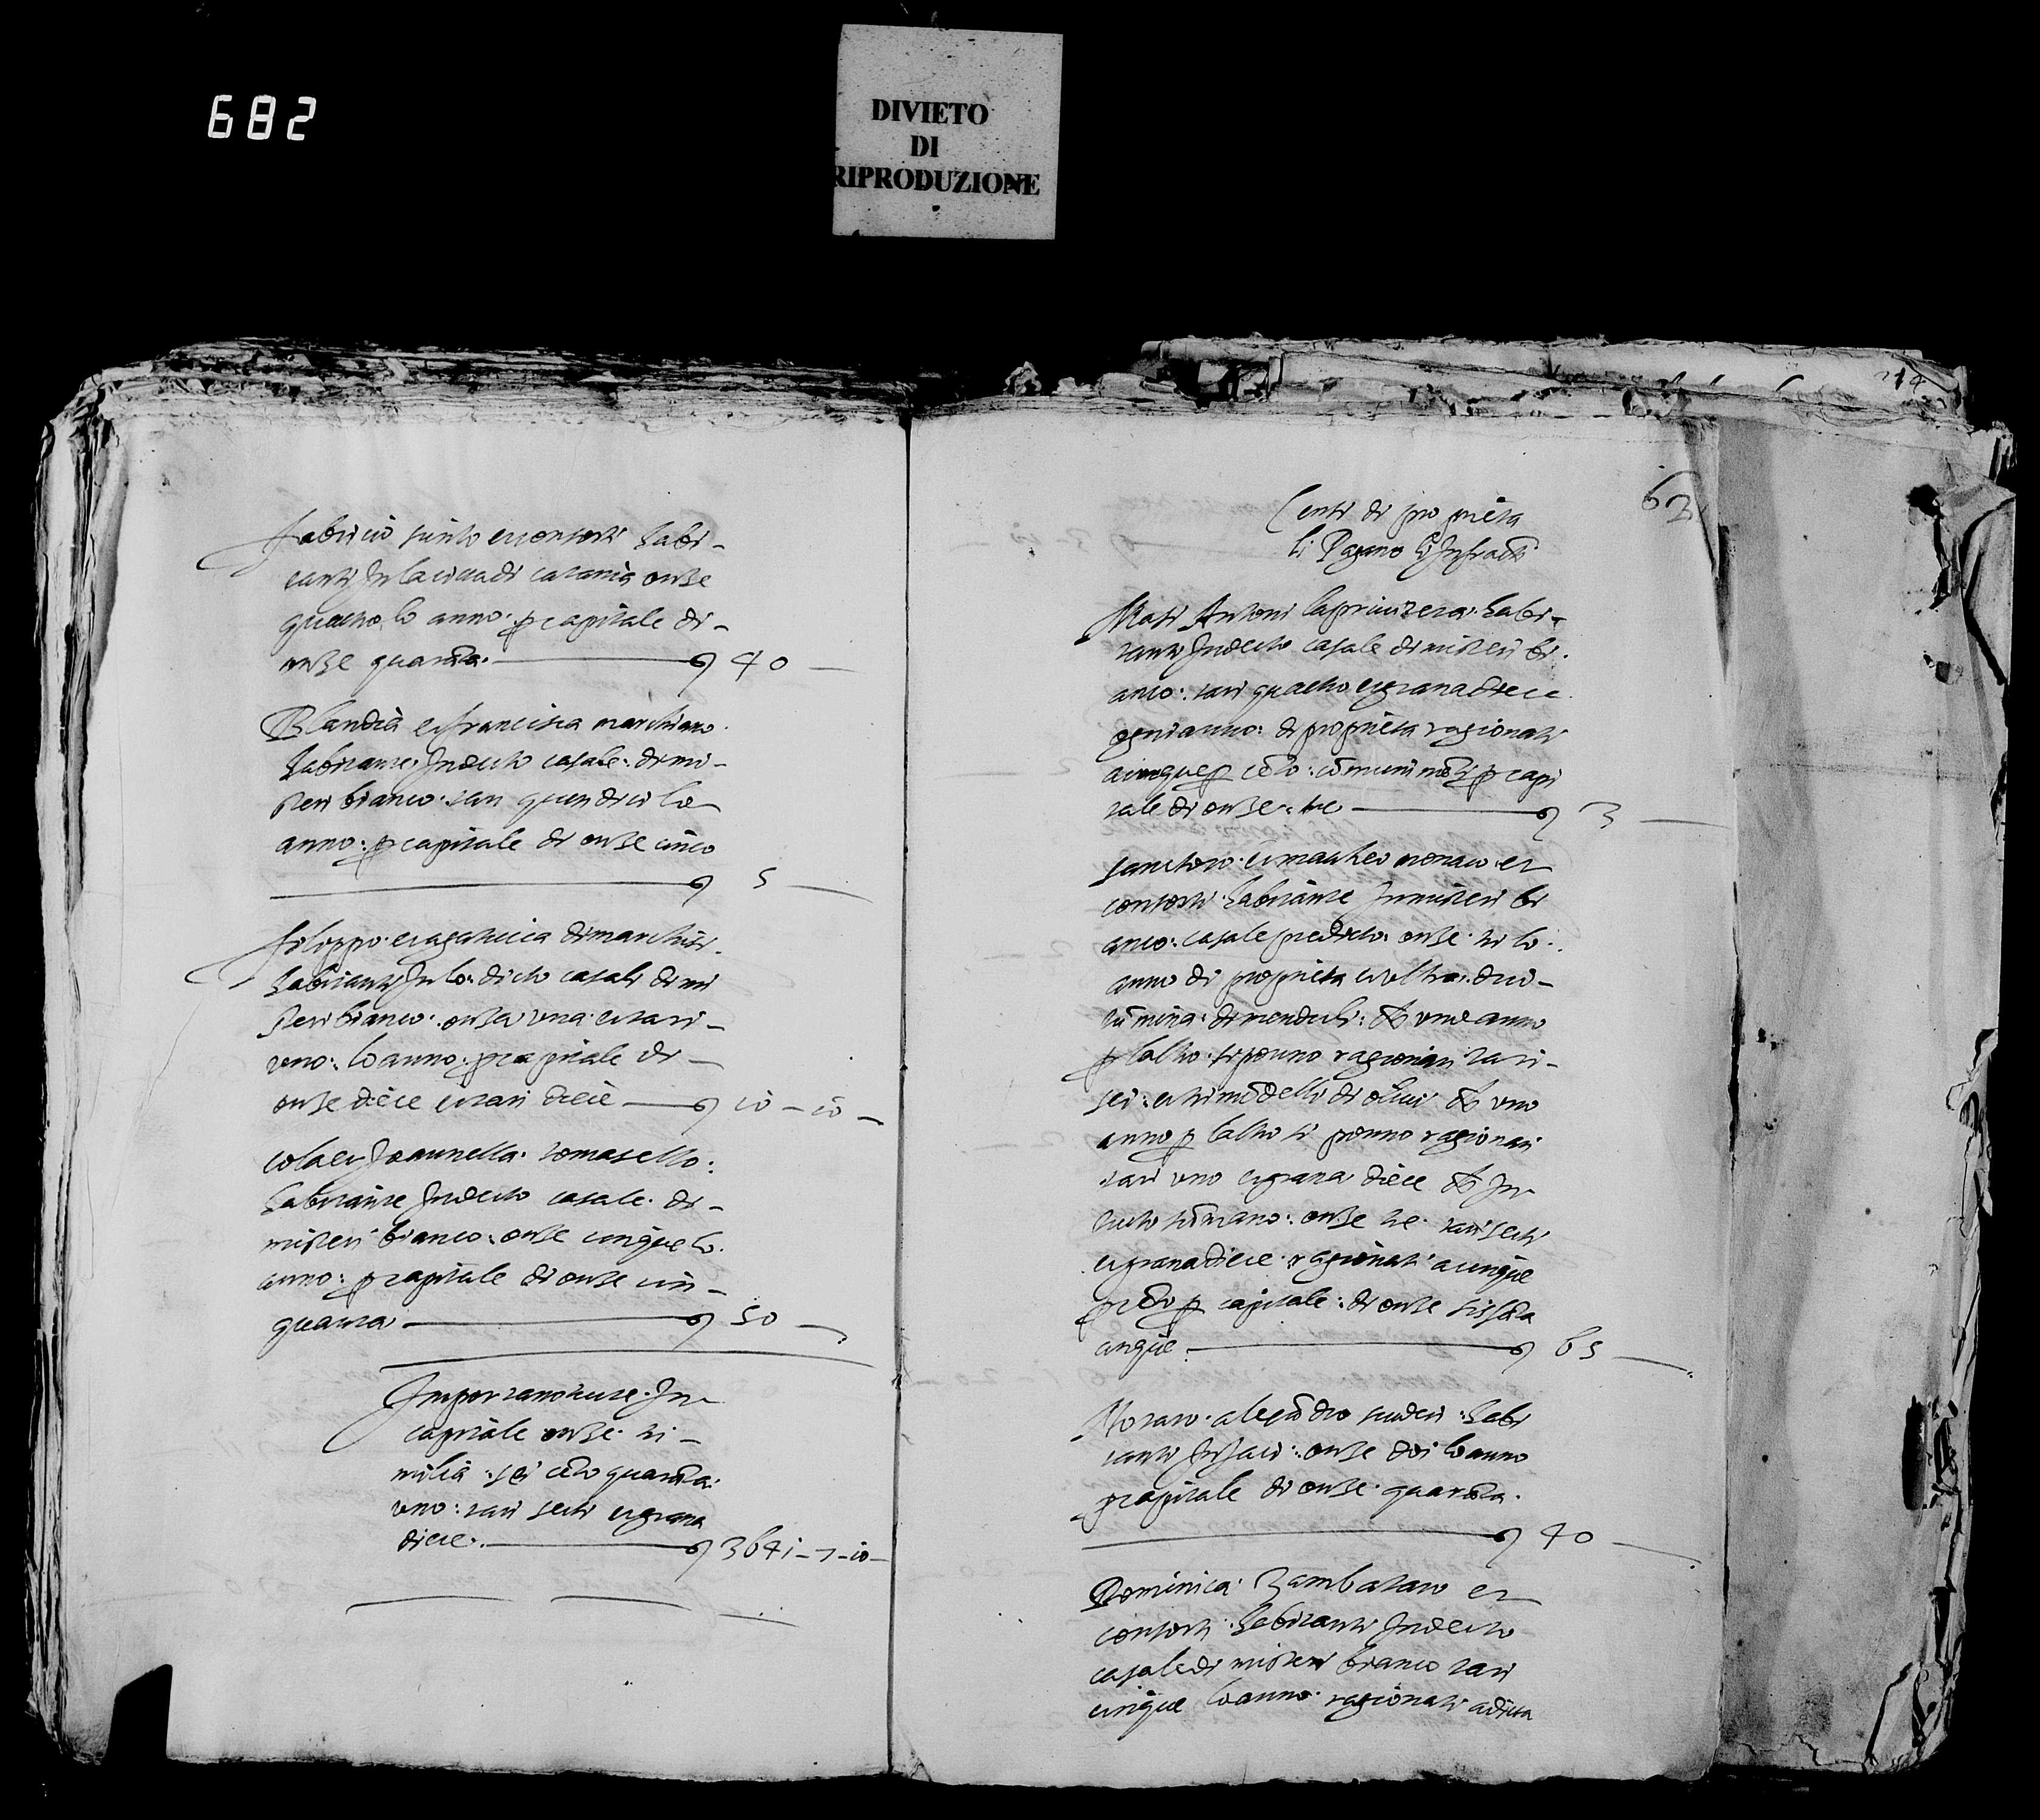 682
DIVIETO
DI
RIPRODUZIONE
fabricio et consorti habi-
tanti In la cita di catania onze
quatro lo anno: p capitale di-
onze quarāta. 40
Blandia et francisca marchiano
habitante In decto casale: di mi-
steri bianco tari quindici lo
anno: p capitale di onze cinco
5
filippo et agatuzza di marchisi
habitanti In lo: dicto casali di mi
steri bianco: onza una et tari-
uno: lo anno: p capitale di-
onze diece et tari diece 10 - 10 -
cola et Joannella tomasello:
habitante In decto casale di-
misteri bianco: onze cinque lo
anno: p capitale di onze cin-
quanta 50
In
capitale onze tri-
milia: sei cēto quarāta
uno: tari secti et grana
diece. 3641-7-10-
62
Censi di proprieta
li Pagano li Infracti
Masi Antoni habi-
tanti In decto casale di misteri bi
anco: tari quatro et grana diece
ogni anno: di proprieta ragionati
a cinque p cēto: p capi
tale di onze: tre 3
et matheo monaco et
consorti habitante In misteri bi
anco: casale predicto: onze tri lo
anno di proprieta et ultra: dui-
tūmina: di menduli: uno anno
p laltro: si ponno ragionari tari-
sei: et tri mōdelli di olivi uno
anno p laltro si ponno ragionari
tari uno et grana diece In
tucto sūmano: onze tre tari secti
et grana diece ragionati a cinque
p cēto p capitale: di onze sissāta
cinque 65
Notaro alexādro habi
tanti In Jaci: onze doi lo anno
p capitale di onze quarāta.
40
Dominica Zambataro et
consorti habitanti In decto
casale di misteri bianco tari
cinque lo anno ragionati a dicta